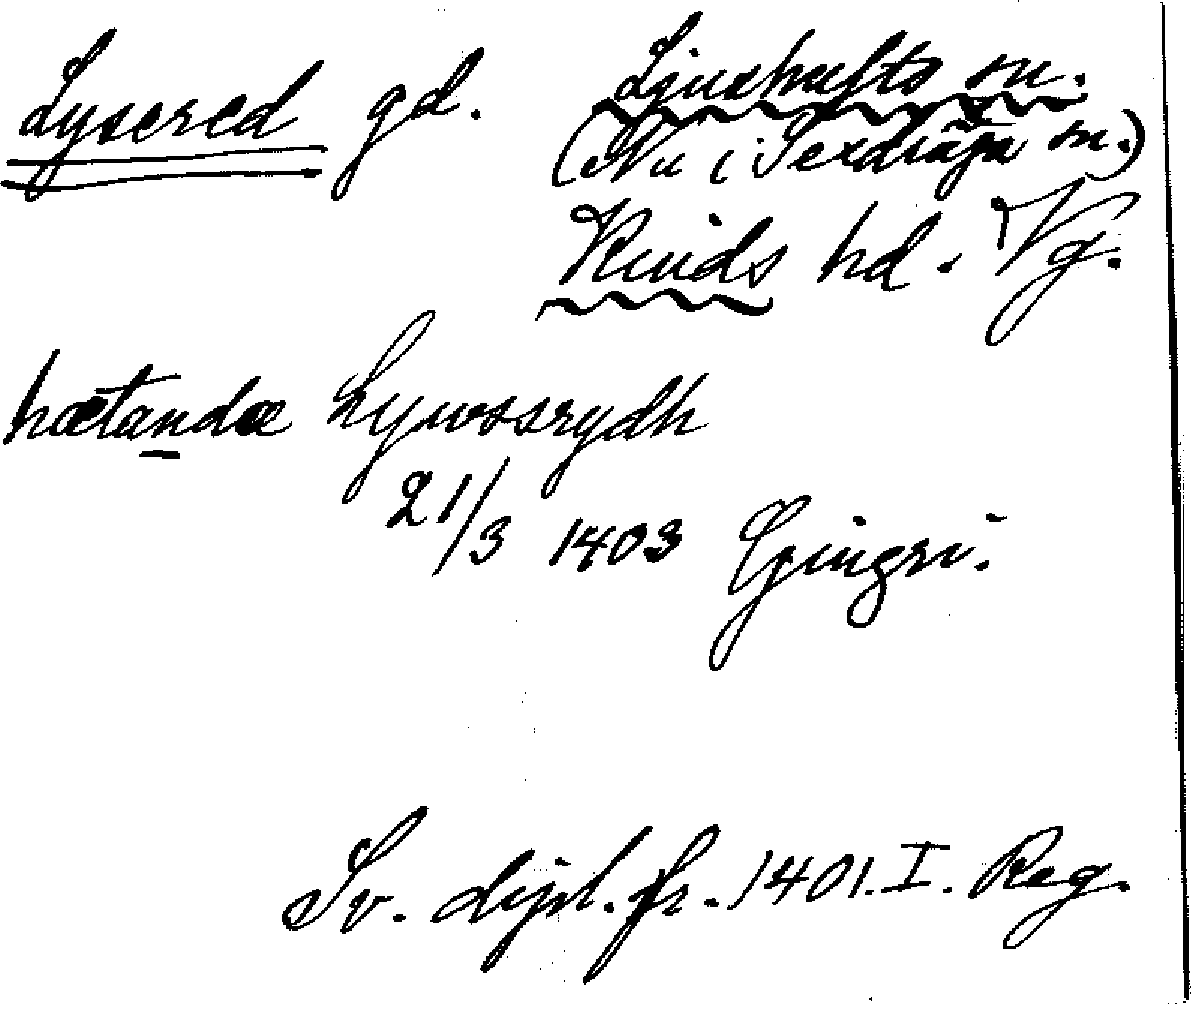 Lysered gd. Ljushults sn.
(Nu i Sexdräga sn.)
Kinds hd. Vg.
hætandæ Lywssrydh
21/3 1403 Gingri.
Sv. dipl. fr. 1401. I. Reg.